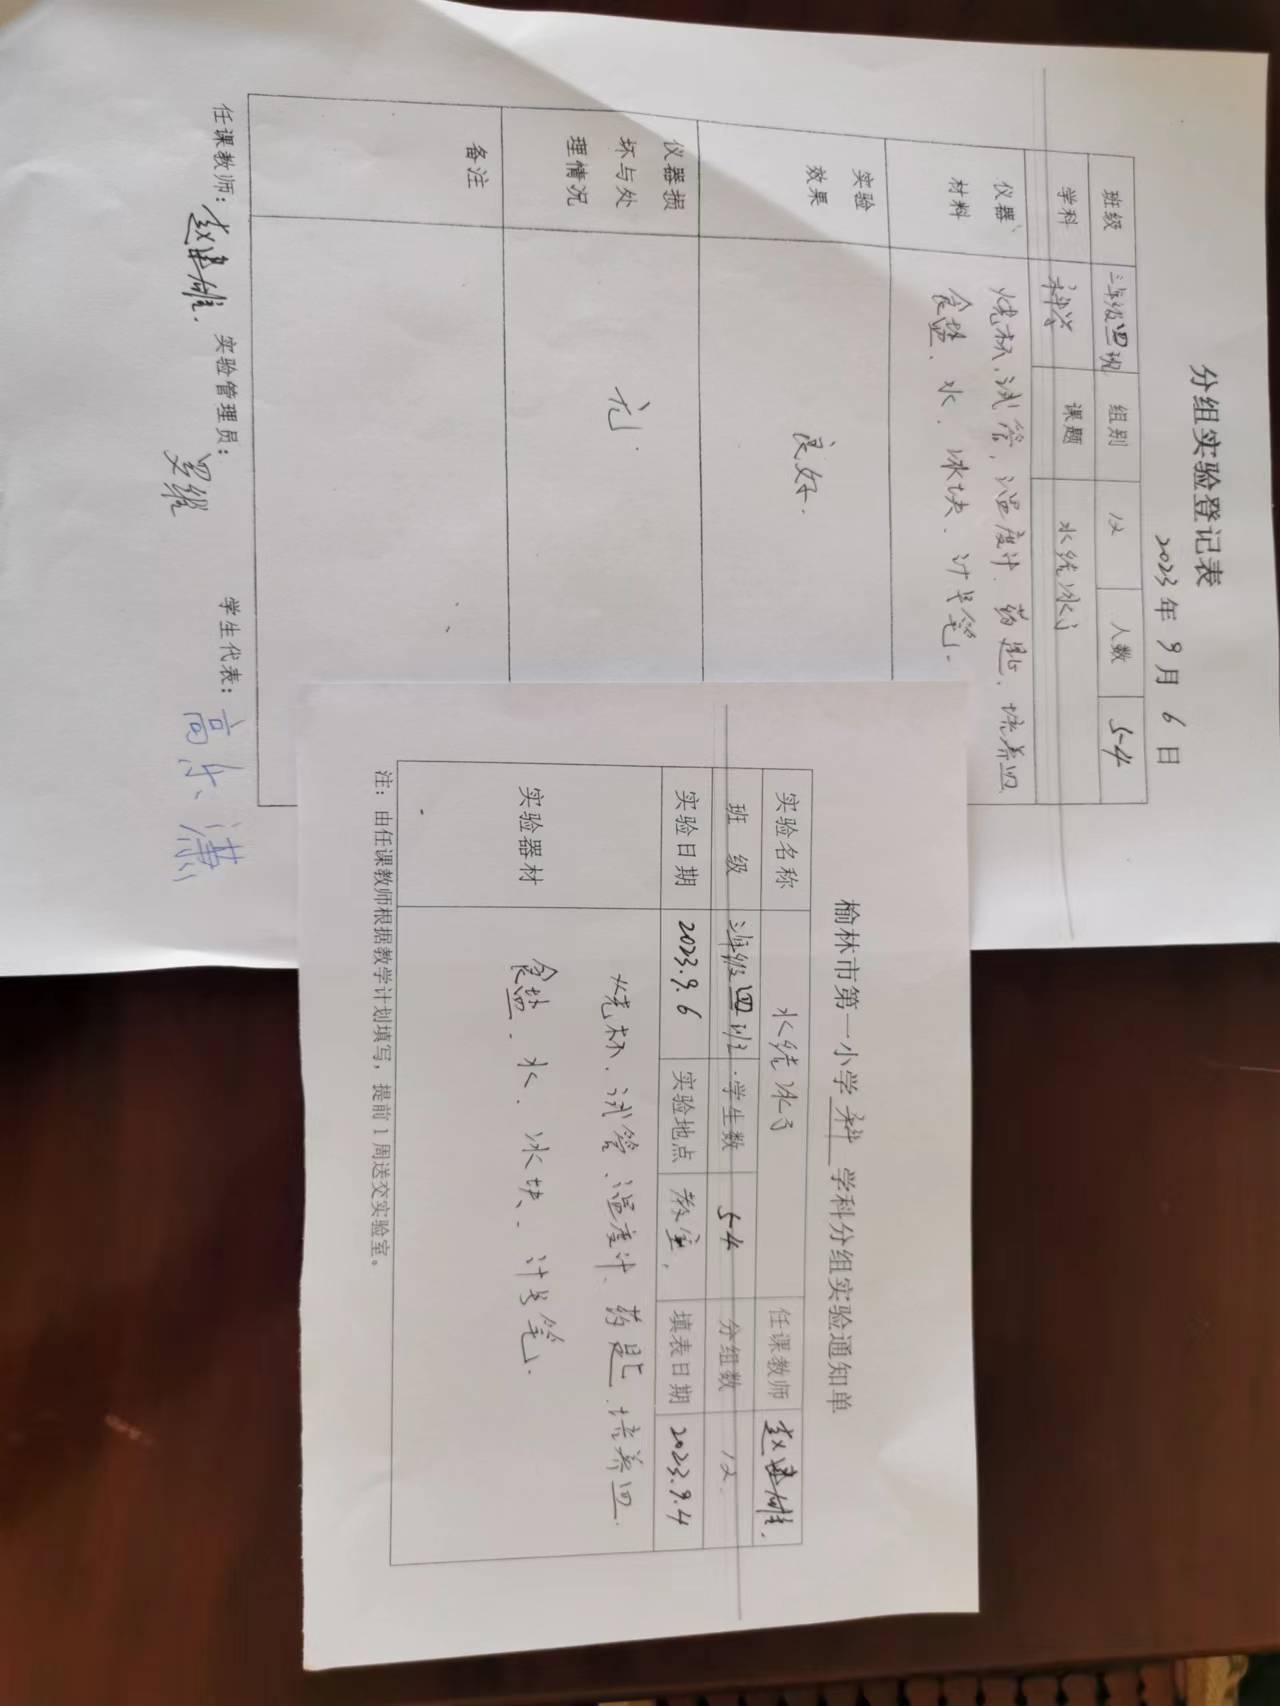 分组实验登记表
2023年 9月 6日
班级 三年级四班 组别 12 人数 54
学科 科学 课题 水结冰了
仪器、材料 烧杯、试管、温度计、药匙、培养皿
食盐、水、冰块、计号笔.
实验效果 良好.
仪器损坏与处理情况 无.
备注
任课教师: 赵 雄. 实验管理员: 罗 学生代表: 高乐潇
榆林市第一小学 科学 学科分组实验通知单
实验名称 水结冰了 任课教师 赵 雄.
班 级 三年级四班. 学生数 54 分组数 12.
实验日期 2023.9.6 实验地点 教室. 填表日期 2023.9.4
实验器材 烧杯、试管、温度计、药匙、培养皿.
食盐、水、冰块、计号笔.
注:由任课教师根据教学计划填写,提前1周送交实验室。